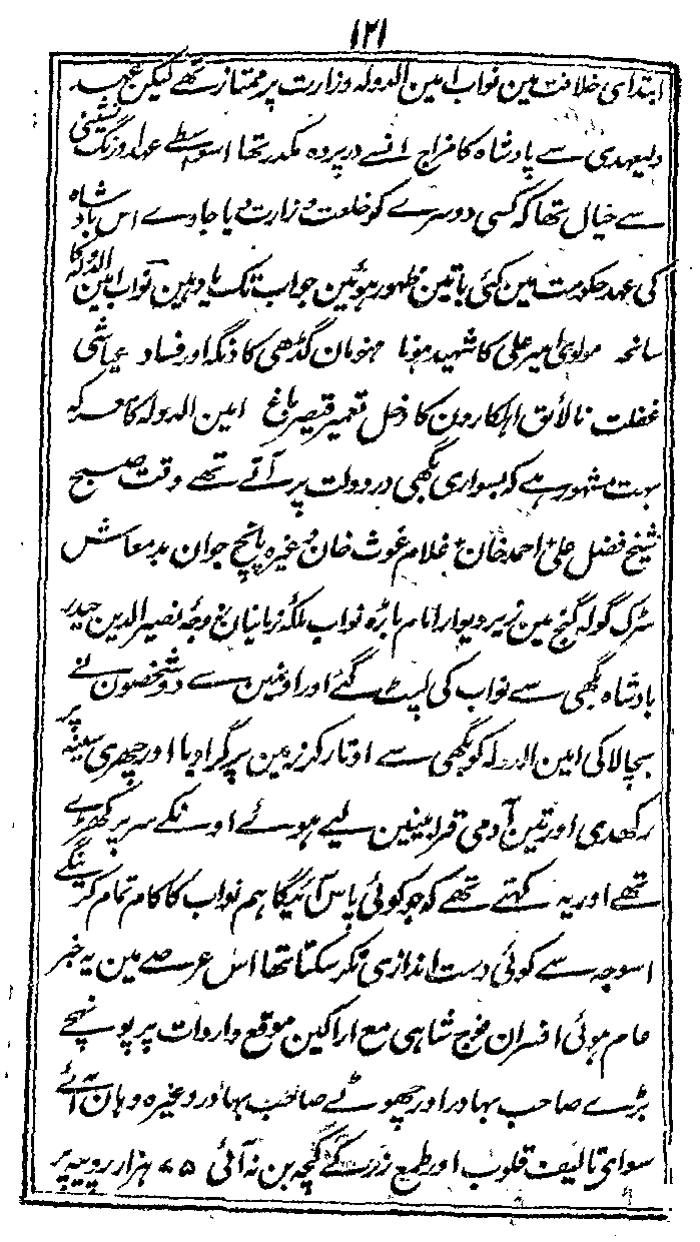 ۱۲۱
ابتدای خلافت مین نواب امین الدولہ وزارت پر ممتاز تھے لیکن عہد
ولیعہدی سے پادشاہ کا مزاج انسے درپردہ مکدر تھا اسواسطے عہد اورنگ نشینی
سے خیال تھا کہ کسی دوسرے کو خلعت وزارت دیا جاوے اس بادشاہ
کی عہد حکومت مین کئی باتین ظہور ہوئین جو اب تک یاد ہین نواب امین الدولہ کا
سانحہ مولوی امیر علی کا شہید ہونا ہنومان گڈھی کا دنگہ اور فساد عیاشی
غفلت نالائق اہلکارون کا دخل تعمیر قیصر باغ امین الدولہ کا معرکہ
بہت مشہور ہے کہ بسواری بگھی در دولت پر آتے تھے وقت صبح
شیخ فضل علی احمد خان غلام غوث خان وغیرہ پانچ جوان بدمعاش
سڑک گولہ گنج مین زیر دیوار امام باڑہ نواب ملکہ زمانیان زوجہ نصیر الدین حیدر
بادشاہ بگھی سے نواب کی لپٹ گئے اور اونمین سے دو شخصون نے
بچالاکی امین الدولہ کو بگھی سے اوتار کر زمین پر گرا دیا اور چھری سینہ پر
رکھدی اور تین آدمی قرابینین لیے ہوئے اونکے سر پر کھڑے
تھے اور یہ کہتے تھے کہ جو کوئی پاس آئیگا ہم نواب کا کام تمام کرینگے
اسوجہ سے کوئی دست اندازی نکر سکتا تھا اس عرصے مین یہ خبر
عام ہوئی افسران فوج شاہی مع اراکین موقع واردات پر پونہچے
بڑے صاحب بہادر اور چھوٹے صاحب بہادر وغیرہ وہان آئے
سوای تالیف قلوب اور طمع زر کے کچھ بن نہ آئی ۶۵ ہزار روپیہ پر